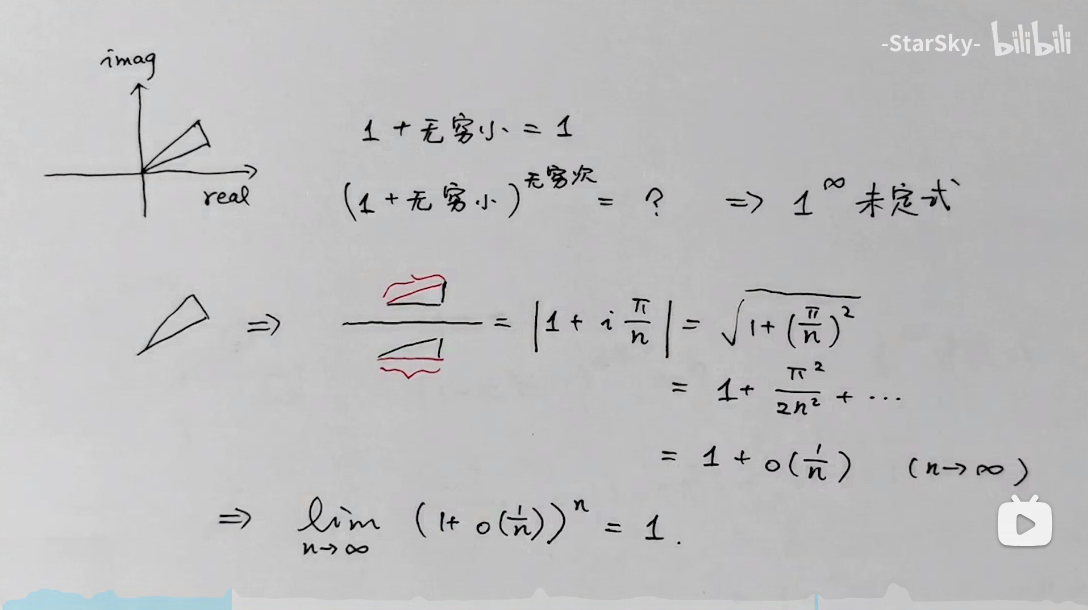 -StarSky- bilibili
imag
real
1 + 无穷小 = 1
(1 + 无穷小)^无穷次 = ? => 1^∞ 未定式
=> = |1 + i π/n| = √(1 + (π/n)²)
= 1 + π²/2n² + ···
= 1 + o(1/n) (n→∞)
=> lim n→∞ (1 + o(1/n))^n = 1.